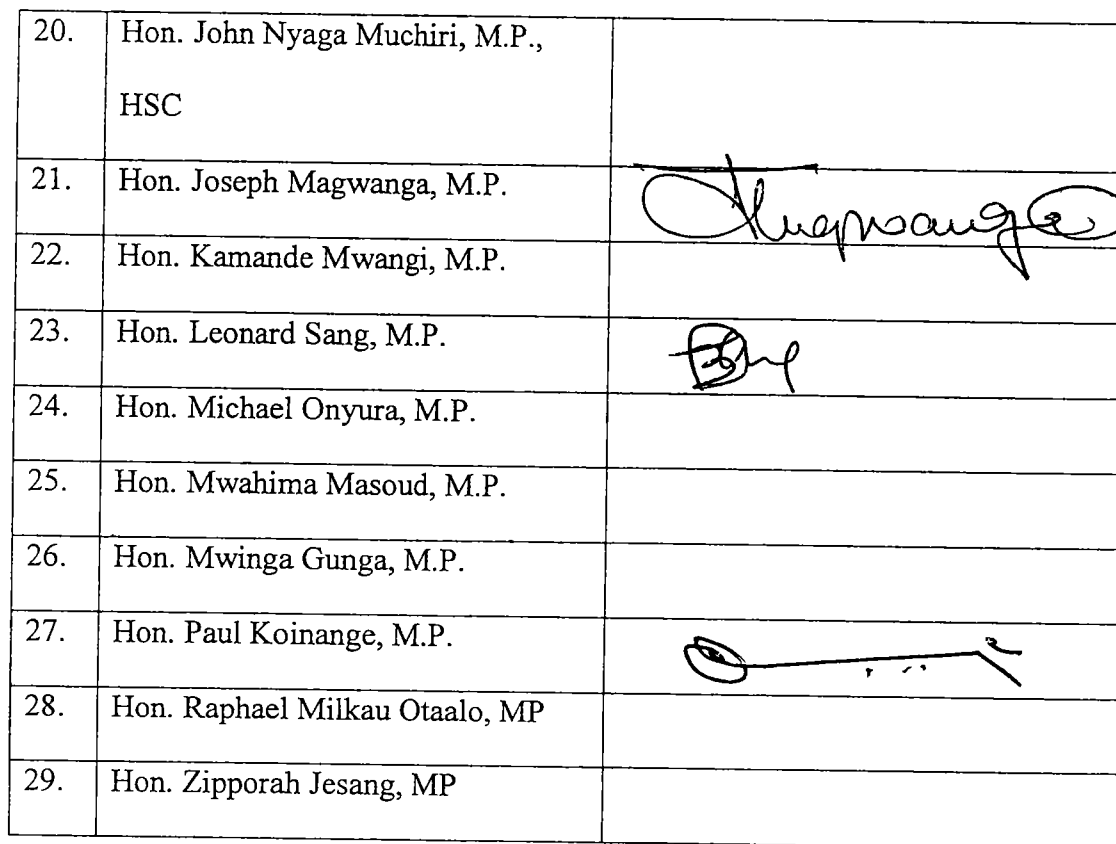 20. Hon. John Nyaga Muchiri, M.P.,
HSC
21. Hon. Joseph Magwanga, M.P.
22. Hon. Kamande Mwangi, M.P.
23. Hon. Leonard Sang, M.P.
24. Hon. Michael Onyura, M.P.
25. Hon. Mwahima Masoud, M.P.
26. Hon. Mwinga Gunga, M.P.
27. Hon. Paul Koinange, M.P.
28. Hon. Raphael Milkau Otaalo, MP
29. Hon. Zipporah Jesang, MP